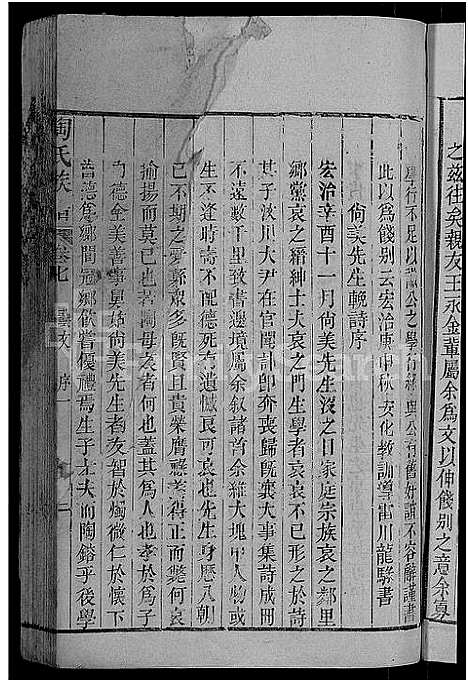 之茲往矣親友王永金輩屬余爲文以伸餞別之意余寡
學行不足以 公之學行 與公 舊好誼不容辭謹書
此以爲餞別云宏治庚申秋安化教諭導雷川龍驤書
尚美先生輓詩序
宏治辛酉十一月尚美先生沒之日家庭宗族哀之鄰里
鄉黨哀之縉紳士夫哀之門生學者哀哀不已形之於詩
其子汝川大尹在官聞訃卽奔喪歸旣襄大事集詩成冊
不遠數千里致書邊境屬余叙諸首余維大塊中人物或
壽而不德死乃有遺憾哀可哀也尚美先生身歷八朝
已不期之 旣賢且貴榮膺 善而得正而斃何哀
揄揚而莫已也若 母哀者何也蓋其爲人也爲子
德全美善事 姑尚美先生者友智於燭微仁於懷下
普德爲鄉閭冠鄉飲嘗優禮焉生子 夫而陶鎔乎後學
陶氏族 卷七 藝文 序一 二